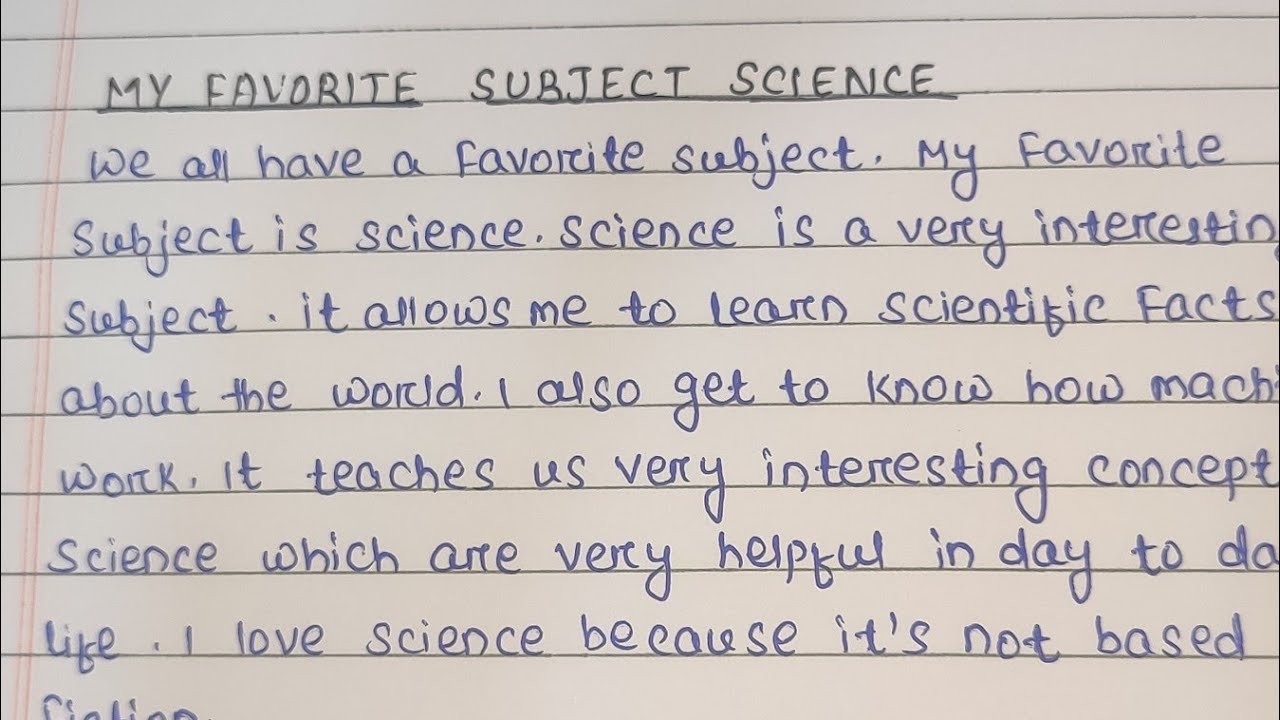 MY FAVORITE SUBJECT SCIENCE
We all have a favorite subject. My favorite
subject is science. science is a very interestin
subject. it allows me to learn scientific facts
about the world. I also get to know how mach
work. It teaches us very interesting concept
science which are very helpful in day to da
life. I love science because it's not based
fiction.